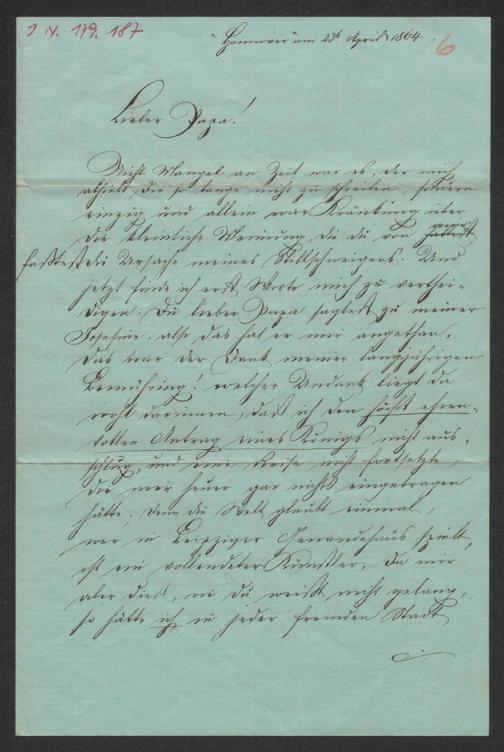 J. N. 179. 187
Hannover am 23t April 1864.
6
Lieber Papa!
Nicht Mangel an Zeit war es, der mich
abhielt Dir so lange nicht zu schreiben, sondern
einzig und allein war Kränkung über
die kleinliche Meinung, die du von
faßtest die Ursache meines Stillschweigens. Und
jetzt finde ich erst Worte mich zu verthei-
digen. Du lieber Papa sagtest zu meiner
Josefine: also das hat er mir angethan,
das war der Dank meiner langjährigen
Bemühung! welcher Undank liegt da
wohl darinnen, daß ich den höchst ehren-
vollen Antrag eines Königs nicht aus-
schlug, und eine Reise nicht fortsetzte,
die mir heuer gar nichts eingetragen
hätte; denn die Welt glaubt einmal,
wer in Leipziger Gewandhaus spielt,
ist ein vollendeter Künstler. Da mir
aber dieß, wie Du weißt nicht gelang,
so hätte ich in jeder fremden Stadt